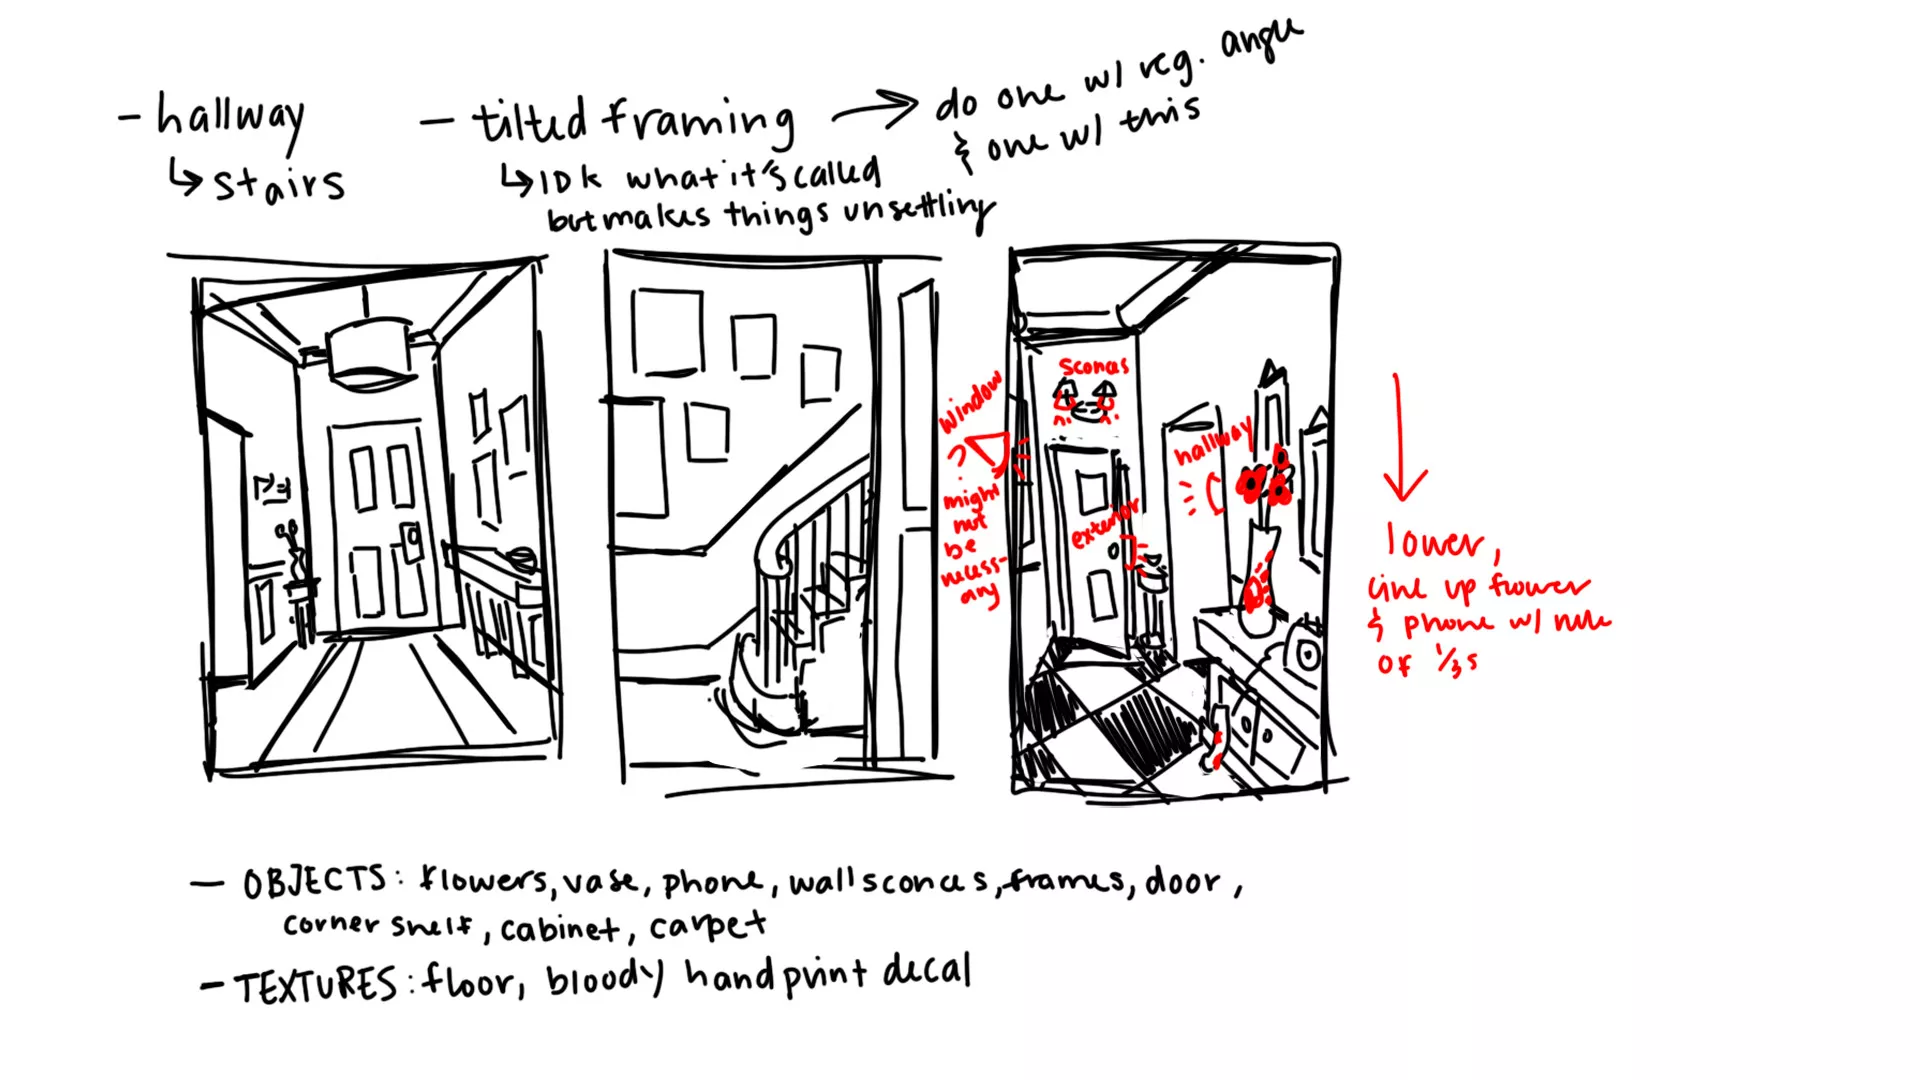 - hallway
↳ stairs
- tilted framing → do one w/ reg. angle
& one w/ this
↳ IDK what it's called
but makes things unsettling
window
?
might
not
be
necess-
ary
sconces
exterior
hallway
lower,
line up flower
& phone w/ rule
of 1/3s
- OBJECTS: flowers, vase, phone, wall sconces, frames, door,
corner shelf, cabinet, carpet
- TEXTURES: floor, bloody handprint decal